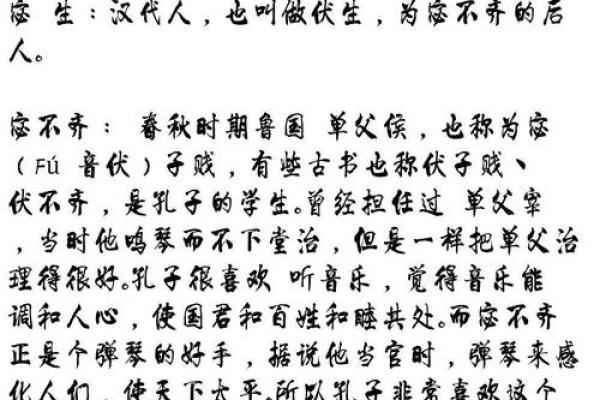 宓 生：汉代人，也叫做伏生，为宓不齐的后
人。
宓不齐： 春秋时期鲁国 单父侯，也称为宓
（Fú 音伏）子贱，有些古书也称伏子贱、
伏不齐，是孔子的学生。曾经担任过 单父宰
，当时他鸣琴而不下堂治，但是一样把单父治
理得很好。孔子很喜欢 听音乐，觉得音乐能
调和人心，使国君和百姓和睦共处。而宓不齐
正是个弹琴的好手，据说他当官时，弹琴来感
化人们，使天下太平。所以孔子非常喜欢这个